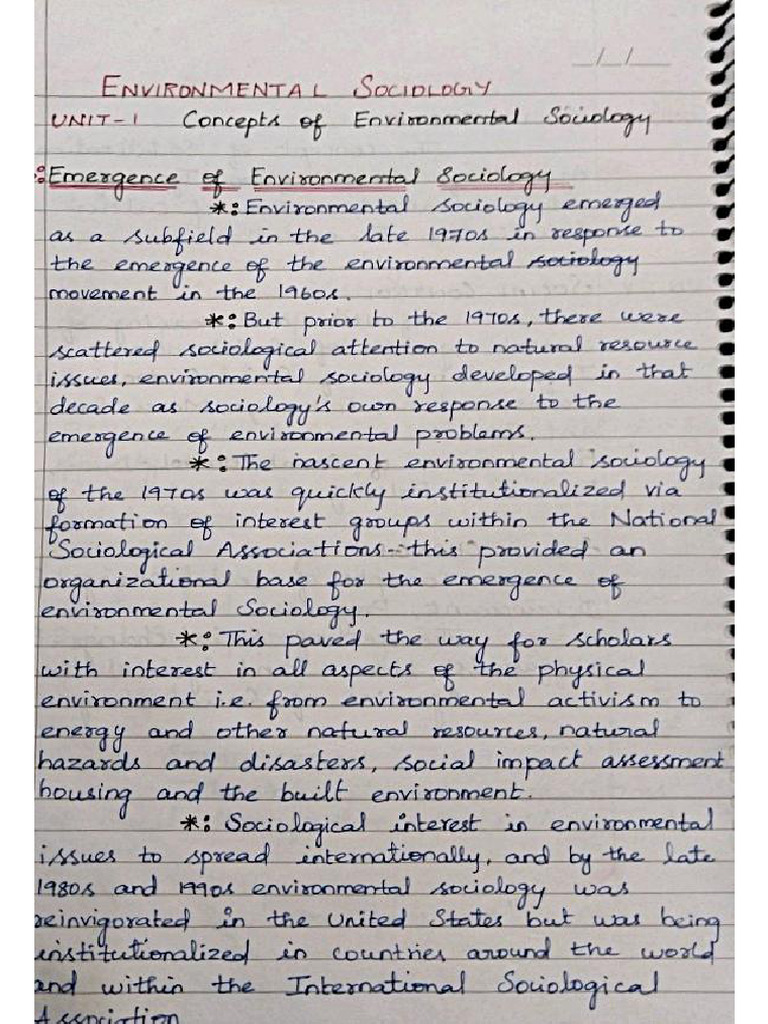 _/_/_
ENVIRONMENTAL SOCIOLOGY
UNIT-1 Concepts of Environmental Sociology
:Emergence of Environmental Sociology
*: Environmental sociology emerged
as a subfield in the late 1970s in response to
the emergence of the environmental sociology
movement in the 1960s.
*: But prior to the 1970s, there were
scattered sociological attention to natural resource
issues, environmental sociology developed in that
decade as sociology's own response to the
emergence of environmental problems.
*: The nascent environmental sociology
of the 1970s was quickly institutionalized via
formation of interest groups within the National
Sociological Associations - this provided an
organizational base for the emergence of
environmental Sociology.
*: This paved the way for scholars
with interest in all aspects of the physical
environment i.e. from environmental activism to
energy and other natural resources, natural
hazards and disasters, social impact assessment
housing and the built environment.
*: Sociological interest in environmental
issues to spread internationally, and by the late
1980s and 1990s environmental sociology was
reinvigorated in the United States but was being
institutionalized in countries around the world
and within the International Sociological
Association